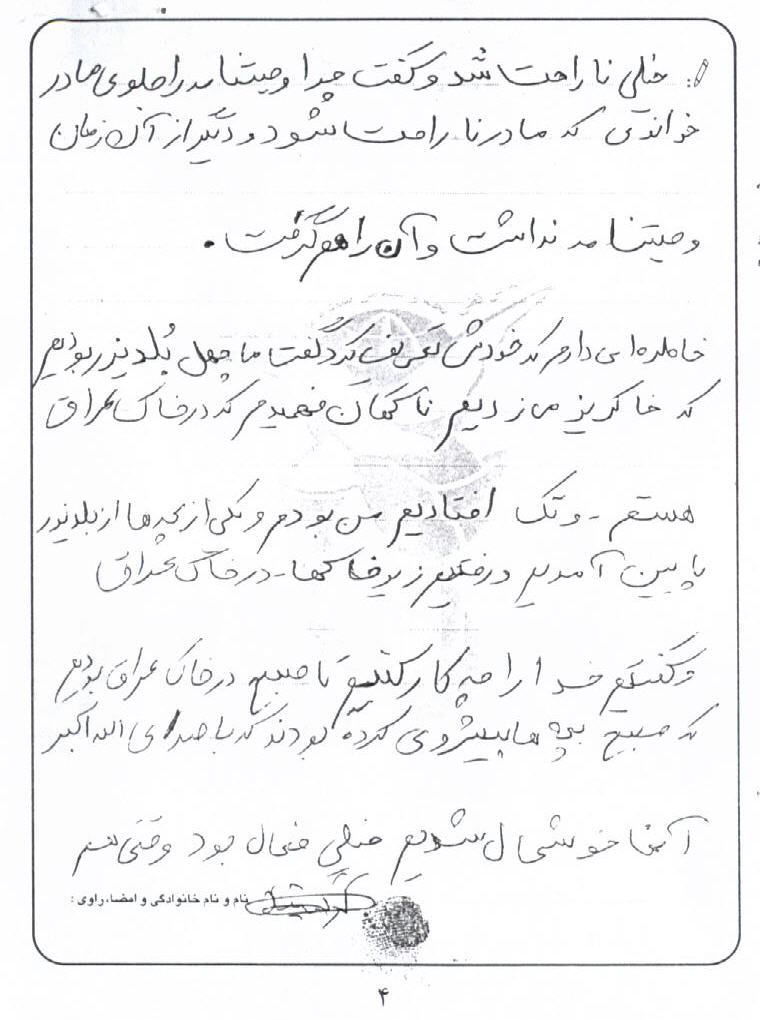 خیلی ناراحت شد و گفت چرا وصیتنامه را جلوی مادر
خواندی که مادر ناراحت شود و دیگر از آن زمان
وصیتنامه نداشت و آن را هم گرفت .
خاطره‌ای دارم که خودش تعریف کرد گفت ما چهل بُلدیزر بودیم
که خاکریز می زدیم ناگهان فهمیدم که در خاک عراق
هستم - و تک افتادیم من بودم و یکی از بچه ها از بلدیزر
پایین آمدیم و رفتیم زیر خاکها - در خاک عراق
و گفتیم خدا را چه کار کنیم تا صبح در خاک عراق بودیم
که صبح بچه ها پیشروی کرده بودند که با صدای الله اکبر
آنها خوشحال شدیم خیلی فعال بود وقتی هم
نام و نام خانوادگی و امضاء راوی :
۴